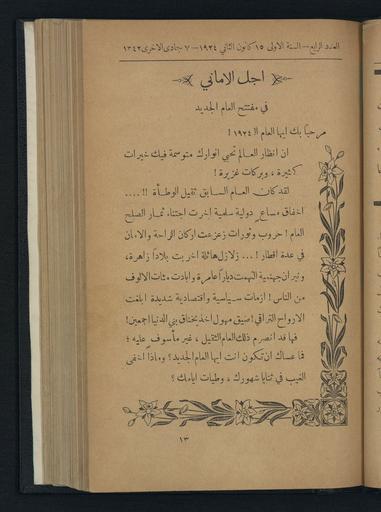 العدد الرابع — السنة الاولى ١٥ كانون الثاني ١٩٢٤ — ٧ جمادى الاخرى ١٣٤٢
اجل الاماني
في مفتتح العام الجديد
مرحباً بك ايها العام الـ ١٩٢٤ !
ان انظار العالم تحيي انوارك متوسمة فيك خيرات
كثيرة ، وبركات غزيرة !
لقد كان العام السابق ثقيل الوطأة !! ....
اخفاق مساعٍ دولية سلمية اخرت اجتناء ثمار الصلح
العام ! حروب وثورات زعزعت اركان الراحة والامان
في عدة اقطار ! ... زلازل هائلة اخربت بلاداً زاهرة ،
ونيران جهنمية التهمت دياراً عامرة وابادت مئات الالوف
من الناس ! ازمات سياسية واقتصادية شديدة ابلغت
الارواح التراقي ! ضيق مهول اخذ بخناق بني الدنيا اجمعين !
فها قد انصرم ذلك العام الثقيل ، غير مأسوف عليه ؛
فما عساك ان تكون انت ايها العام الجديد ؟ وماذا اخفى
الغيب في ثنايا شهورك ، وطيات ايامك ؟
١٣